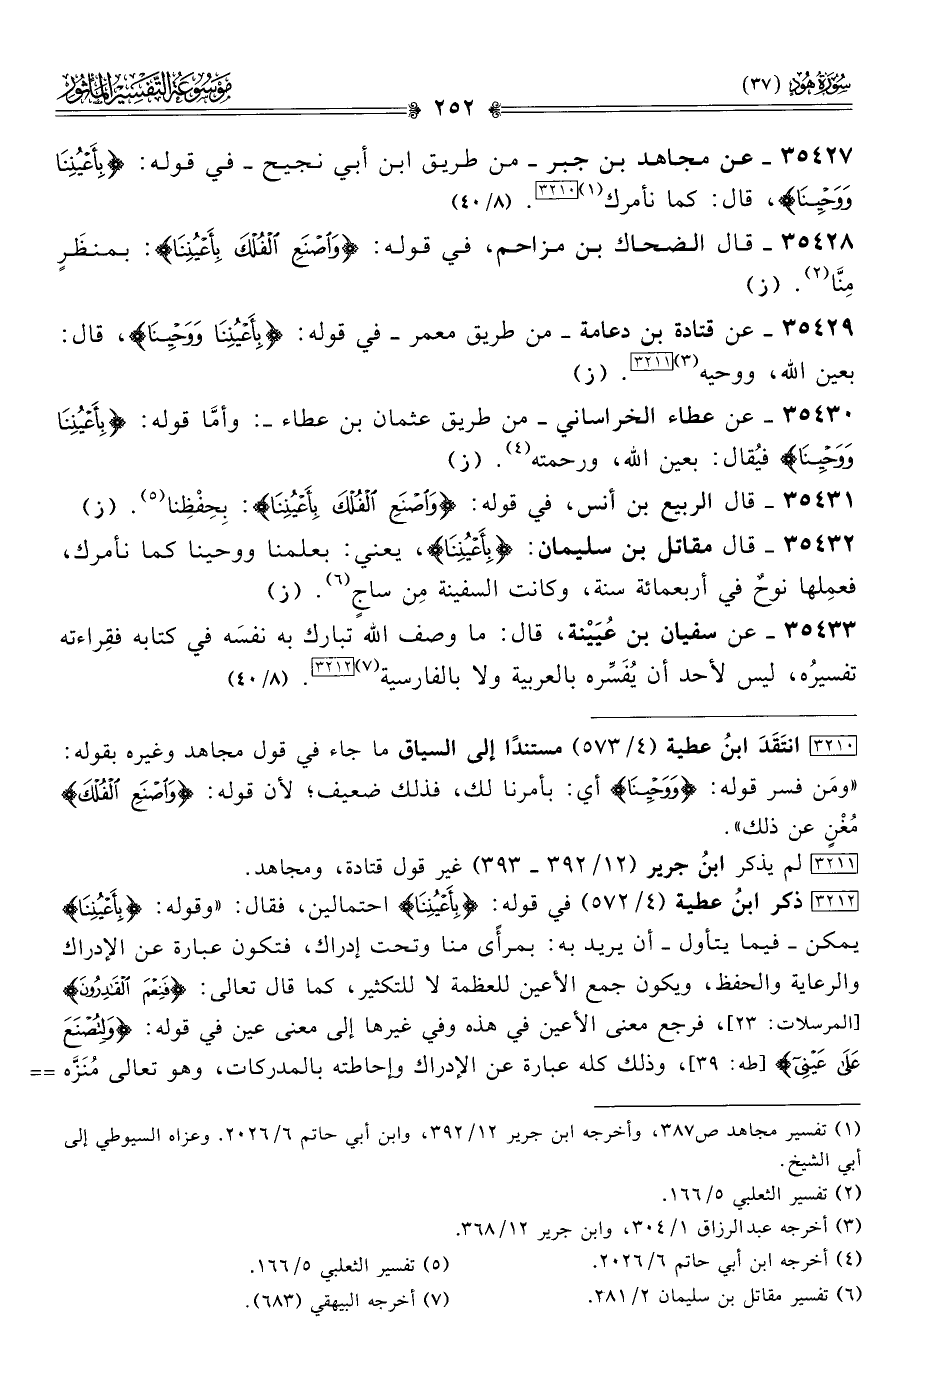 سُورَةُ هُودٍ (٣٧)
٢٥٢
مَوْسُوعَةُ التَّفْسِيرِ المَأْثُورِ
٣٥٤٢٧ ـ عن مجاهد بن جبر ـ من طريق ابن أبي نجيح ـ في قوله: ﴿بِأَعْيُنِنَا
وَوَحْيِنَا﴾، قال: كما نأمرك(١)[٣٢١٠]. (٤٠/٨)
٣٥٤٢٨ ـ قال الضحاك بن مزاحم، في قوله: ﴿وَٱصْنَعِ ٱلْفُلْكَ بِأَعْيُنِنَا﴾: بمنظَرٍ
مِنَّا(٢). (ز)
٣٥٤٢٩ ـ عن قتادة بن دعامة ـ من طريق معمر ـ في قوله: ﴿بِأَعْيُنِنَا وَوَحْيِنَا﴾، قال:
بعين الله، ووحيه(٣)[٣٢١١]. (ز)
٣٥٤٣٠ ـ عن عطاء الخراساني ـ من طريق عثمان بن عطاء ـ: وأمَّا قوله: ﴿بِأَعْيُنِنَا
وَوَحْيِنَا﴾ فيُقال: بعين الله، ورحمته(٤). (ز)
٣٥٤٣١ ـ قال الربيع بن أنس، في قوله: ﴿وَٱصْنَعِ ٱلْفُلْكَ بِأَعْيُنِنَا﴾: بِحِفْظِنا(٥). (ز)
٣٥٤٣٢ ـ قال مقاتل بن سليمان: ﴿بِأَعْيُنِنَا﴾، يعني: بعلمنا ووحينا كما نأمرك،
فعمِلها نوحٌ في أربعمائة سنة، وكانت السفينة مِن ساجٍ(٦). (ز)
٣٥٤٣٣ ـ عن سفيان بن عُيَيْنة، قال: ما وصف الله تبارك به نفسَه في كتابه فقِراءته
تفسيرُه، ليس لأحد أن يُفَسِّره بالعربية ولا بالفارسية(٧)[٣٢١٢]. (٤٠/٨)
[٣٢١٠] انتَقَدَ ابنُ عطية (٥٧٣/٤) مستندًا إلى السياق ما جاء في قول مجاهد وغيره بقوله:
«ومَن فسر قوله: ﴿وَوَحْيِنَا﴾ أي: بأمرنا لك، فذلك ضعيف؛ لأن قوله: ﴿وَٱصْنَعِ ٱلْفُلْكَ﴾
مُغْنٍ عن ذلك».
[٣٢١١] لم يذكر ابنُ جرير (٣٩٢/١٢ ـ ٣٩٣) غير قول قتادة، ومجاهد.
[٣٢١٢] ذكر ابنُ عطية (٥٧٢/٤) في قوله: ﴿بِأَعْيُنِنَا﴾ احتمالين، فقال: «وقوله: ﴿بِأَعْيُنِنَا﴾
يمكن ـ فيما يتأول ـ أن يريد به: بمرأًى منا وتحت إدراك، فتكون عبارة عن الإدراك
والرعاية والحفظ، ويكون جمع الأعين للعظمة لا للتكثير، كما قال تعالى: ﴿فَنِعْمَ ٱلْقَٰدِرُونَ﴾
[المرسلات: ٢٣]، فرجع معنى الأعين في هذه وفي غيرها إلى معنى عين في قوله: ﴿وَلِتُصْنَعَ
عَلَىٰ عَيْنِىٓ﴾ [طه: ٣٩]، وذلك كله عبارة عن الإدراك وإحاطته بالمدركات، وهو تعالى مُنَزَّه ==
(١) تفسير مجاهد ص٣٨٧، وأخرجه ابن جرير ٣٩٢/١٢، وابن أبي حاتم ٢٠٢٦/٦. وعزاه السيوطي إلى
أبي الشيخ.
(٢) تفسير الثعلبي ١٦٦/٥.
(٣) أخرجه عبد الرزاق ٣٠٤/١، وابن جرير ٣٦٨/١٢.
(٤) أخرجه ابن أبي حاتم ٢٠٢٦/٦. (٥) تفسير الثعلبي ١٦٦/٥.
(٦) تفسير مقاتل بن سليمان ٢٨١/٢. (٧) أخرجه البيهقي (٦٨٣).